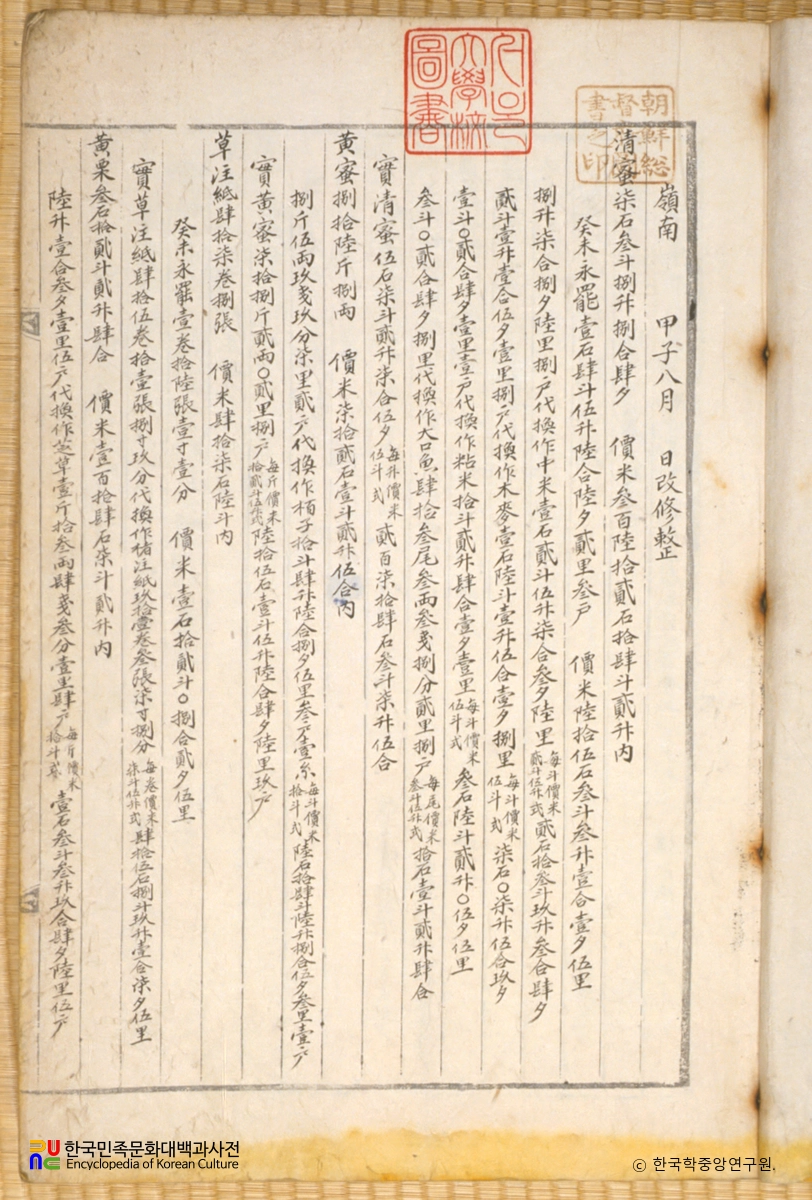 嶺南 甲子八月 日改修整
清蜜柒石叁斗捌升捌合肆夕 價米叁百陸拾貳石拾肆斗貳升內
癸未永罷壹石肆斗伍升陸合陸夕貳里叁戶 價米陸拾伍石叁斗叁升壹合壹夕伍里
捌升柒合捌夕陸里捌戶代換作中米壹石貳斗伍升柒合叁夕陸里每斗價米貳斗伍升式貳石拾叁斗玖升叁合肆夕
貳斗壹升壹合伍夕壹里捌戶代換作木麥壹石陸斗壹升伍合壹夕捌里每斗價米伍斗式柒石〇柒升伍合玖夕
壹斗〇貳合肆夕壹里壹戶代換作粘米拾斗貳升肆合壹夕壹里每斗價米伍斗式叁石陸斗貳升〇伍夕伍里
叁斗〇貳合肆夕捌里代換作大口魚肆拾叁尾叁兩叁戔捌分貳里捌戶每尾價米叁斗伍升式拾石壹斗貳升肆合
實清蜜伍石柒斗貳升柒合伍夕每升價米伍斗式貳百柒拾肆石叁斗柒升伍合
黃蜜捌拾陸斤捌兩 價米柒拾貳石壹斗貳升伍合內
捌斤伍兩玖戔玖分柒里貳戶代換作栢子拾斗肆升陸合捌夕伍里叁戶壹糸每斗價米拾斗式陸石拾肆斗陸升捌合伍夕叁里壹戶
實黃蜜柒拾捌斤貳兩〇貳里捌戶每斤價米拾貳斗伍升式陸拾伍石壹斗伍升陸合肆夕陸里玖戶
草注紙肆拾柒卷捌張 價米肆拾柒石陸斗內
癸未永罷壹卷拾陸張壹寸壹分 價米壹石拾貳斗〇捌合貳夕伍里
實草注紙肆拾伍卷拾壹張捌寸玖分代換作楮注紙玖拾壹卷叁張柒寸捌分每卷價米柒斗伍升式肆拾伍石捌斗玖升壹合柒夕伍里
黃栗叁石拾貳斗貳升肆合 價米壹百拾肆石柒斗貳升內
陸升壹合叁夕壹里伍戶代換作芝草壹斤拾叁兩肆戔叁分壹里肆戶每斤價米拾斗式壹石叁斗叁升玖合肆夕陸里伍戶
朝鮮総督府圖書之印
大學校圖書
한국민족문화대백과사전
Encyclopedia of Korean Culture
© 한국학중앙연구원.